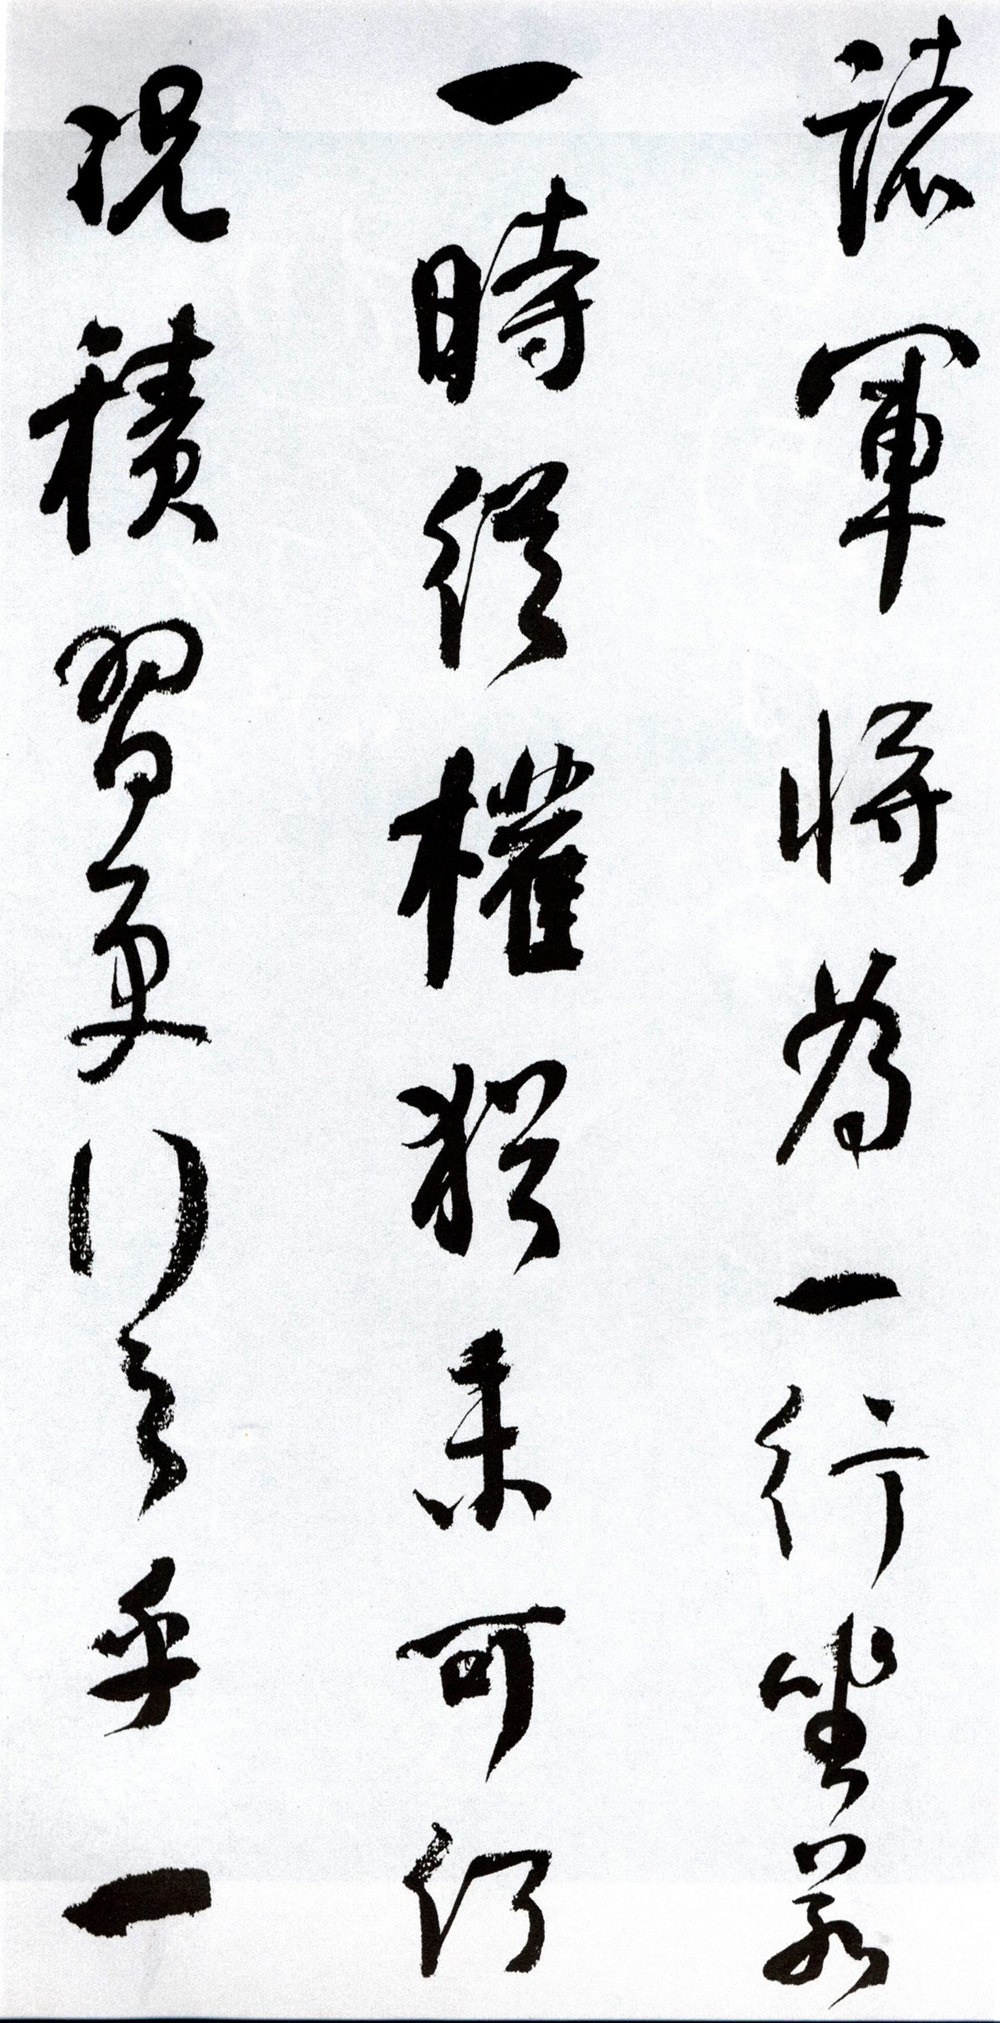 諸軍將為一行坐若
一時從權猶未可何
況積習更行之乎一